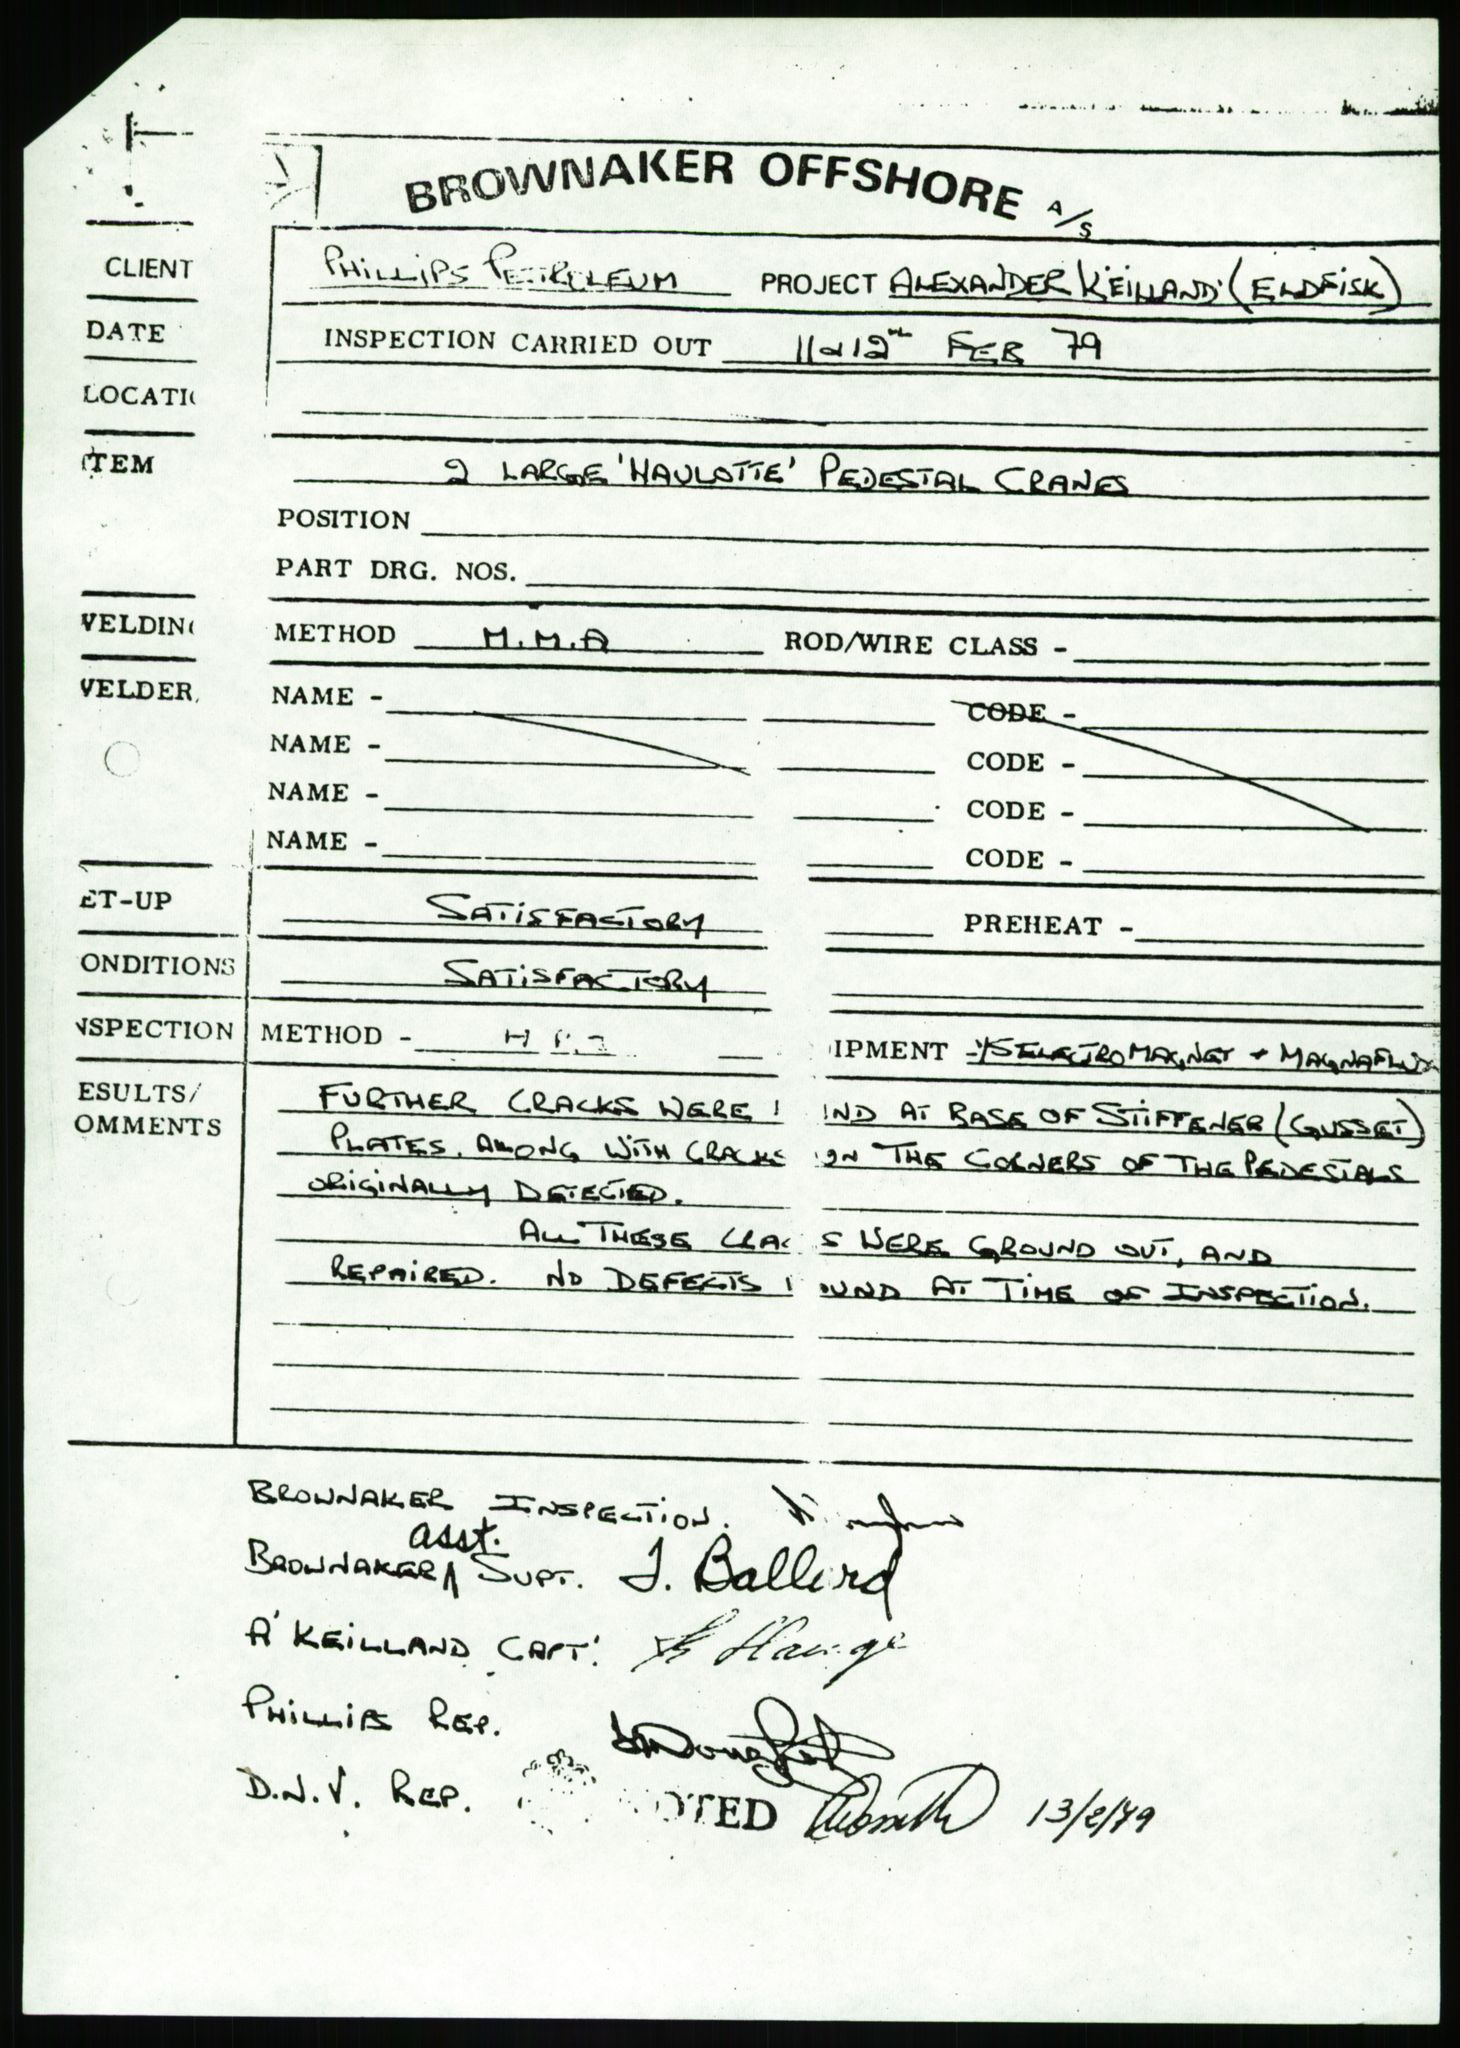 BROWNAKER OFFSHORE A/S
CLIENT PHILLIPS PETROLEUM PROJECT ALEXANDER KEILLAND (ELDFISK)
DATE INSPECTION CARRIED OUT 11 & 12th FEB 79
LOCATI
ITEM 2 LARGE 'HAULOTTE' PEDESTAL CRANES
POSITION
PART DRG. NOS.
WELDIN METHOD M.M.A ROD/WIRE CLASS -
WELDER NAME - CODE -
NAME - CODE -
NAME - CODE -
NAME - CODE -
ET-UP SATISFACTORY PREHEAT -
ONDITIONS SATISFACTORY
NSPECTION METHOD - IPMENT - ELECTRO MAGNET + MAGNAFLUX
ESULTS/ FURTHER CRACKS WERE IND AT BASE OF STIFFENER (GUSSET)
OMMENTS PLATES. ALONG WITH CRACKS ON THE CORNERS OF THE PEDESTALS
ORIGINALLY DETECTED.
ALL THESE CRAC S WERE GROUND OUT, AND
REPAIRED. NO DEFECTS OUND AT TIME OF INSPECTION.
BROWNAKER INSPECTION.
BROWNAKER asst. SUPT. J. Ballard
A' KEILLAND CAPT. Hauge
PHILLIPS REP.
D.N.V. REP. OTED 13/2/79